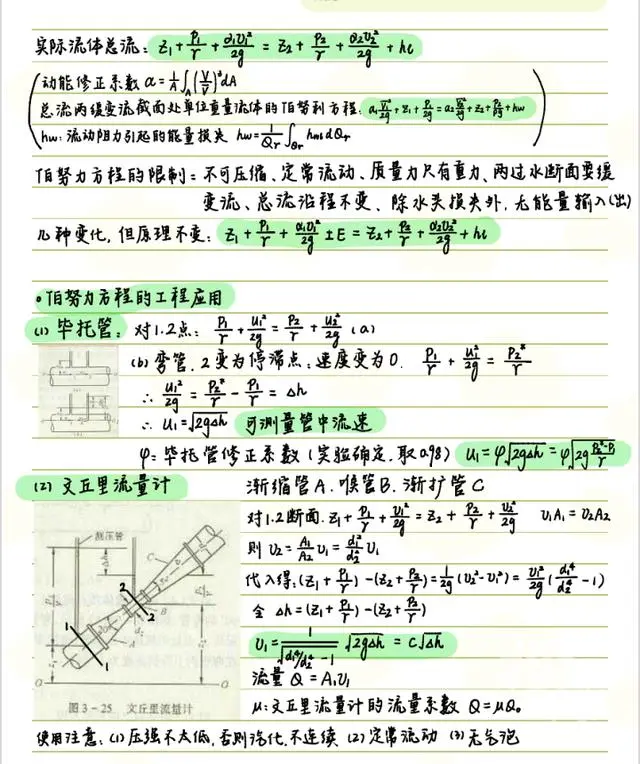 实际流体总流: z₁+P₁/γ+α₁υ₁²/2g = z₂+P₂/γ+α₂υ₂²/2g+hl
动能修正系数 α=1/A∫_A(v/V)³dA
总流两缓变流截面处单位重量流体的伯努利方程: a₁V₁²/2g+z₁+P₁/ρg=a₂V₂²/2g+z₂+P₂/ρg+hw
hw: 流动阻力引起的能量损失 hw=1/Qγ∫_Qγ hw dQγ
伯努力方程的限制=不可压缩、定常流动、质量力只有重力、两过水断面要缓
变流、总流沿程不变、除水头损失外,无能量输入(出)
几种变化,但原理不变: z₁+P₁/γ+α₁υ₁²/2g±E=z₂+P₂/γ+α₂υ₂²/2g+hl
。伯努力方程的工程应用
(1) 毕托管: 对1.2点: P₁/γ+u₁²/2g=P₂/γ+u₂²/2g (a)
(b) 弯管, 2变为停滞点:速度变为0. P₁/γ+u₁²/2g=P₂*/γ
∴ u₁²/2g=P₂*/γ-P₁/γ=Δh
∴ u₁=√2gΔh 可测量管中流速
φ=毕托管修正系数(实验确定,取0.98) u₁=φ√2gΔh=φ√2g(P₂*-P₁)/γ
(2) 文丘里流量计 渐缩管A.喉管B.渐扩管C
对1.2断面.z₁+P₁/γ+υ₁²/2g=z₂+P₂/γ+υ₂²/2g υ₁A₁=υ₂A₂
则 υ₂=A₁/A₂υ₁=d₁²/d₂²υ₁
代入得.(z₁+P₁/γ)-(z₂+P₂/γ)=1/2g(υ₂²-υ₁²)=υ₁²/2g(d₁⁴/d₂⁴-1)
令 Δh=(z₁+P₁/γ)-(z₂+P₂/γ)
υ₁=1/√d₁⁴/d₂⁴-1 √2gΔh=C√Δh
流量 Q=A₁υ₁
μ:文丘里流量计的流量系数 Q=μQ。
测压管
Δh
C
2
B
2
1
d₂
A
1
O
O
图 3-25 文丘里流量计
使用注意:(1)压强不太低,否则汽化.不连续 (2)定常流动 (3)无气泡